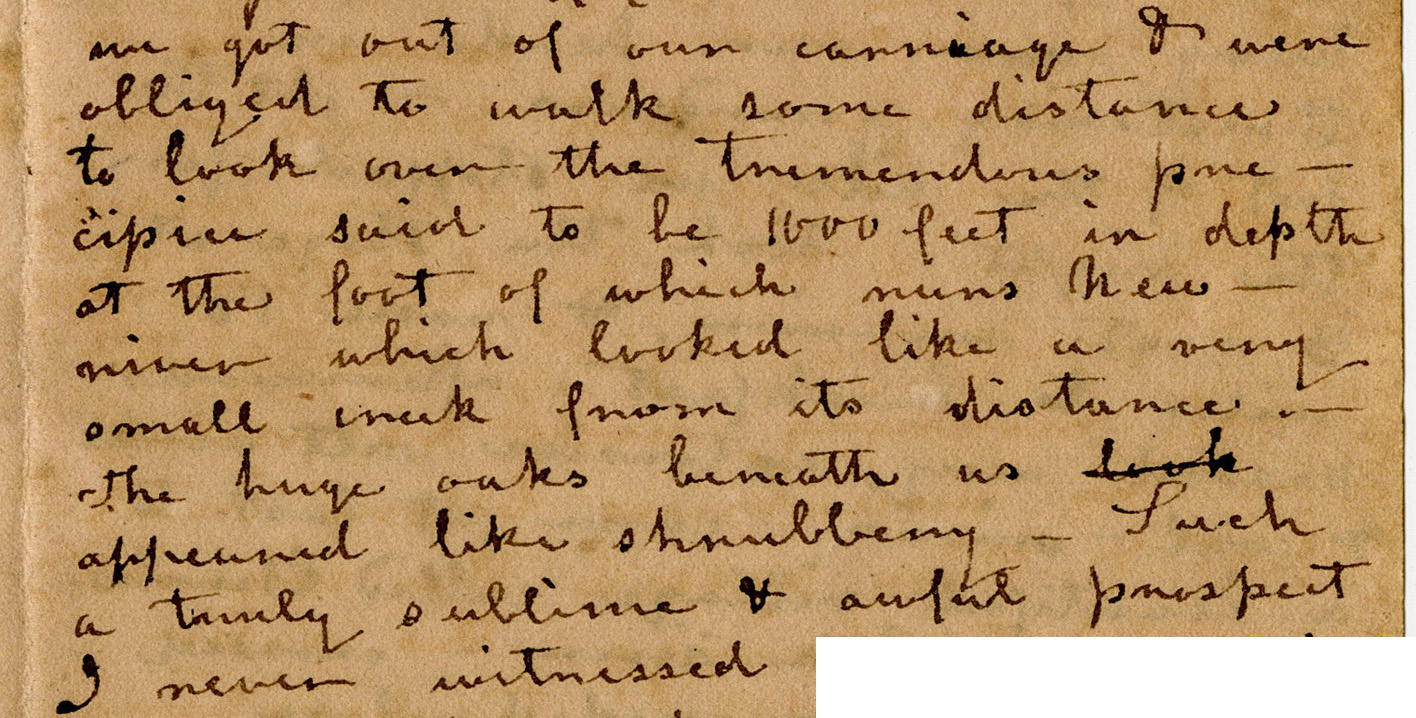 we got out of our carriage & were
obliged to walk some distance
to look over the tremendous pre-
cipice said to be 1000 feet in depth
at the foot of which runs New-
river which looked like a very
small creek from its distance. -
the huge oaks beneath us look
appeared like shrubbery - Such
a truly sublime & awful prospect
I never witnessed